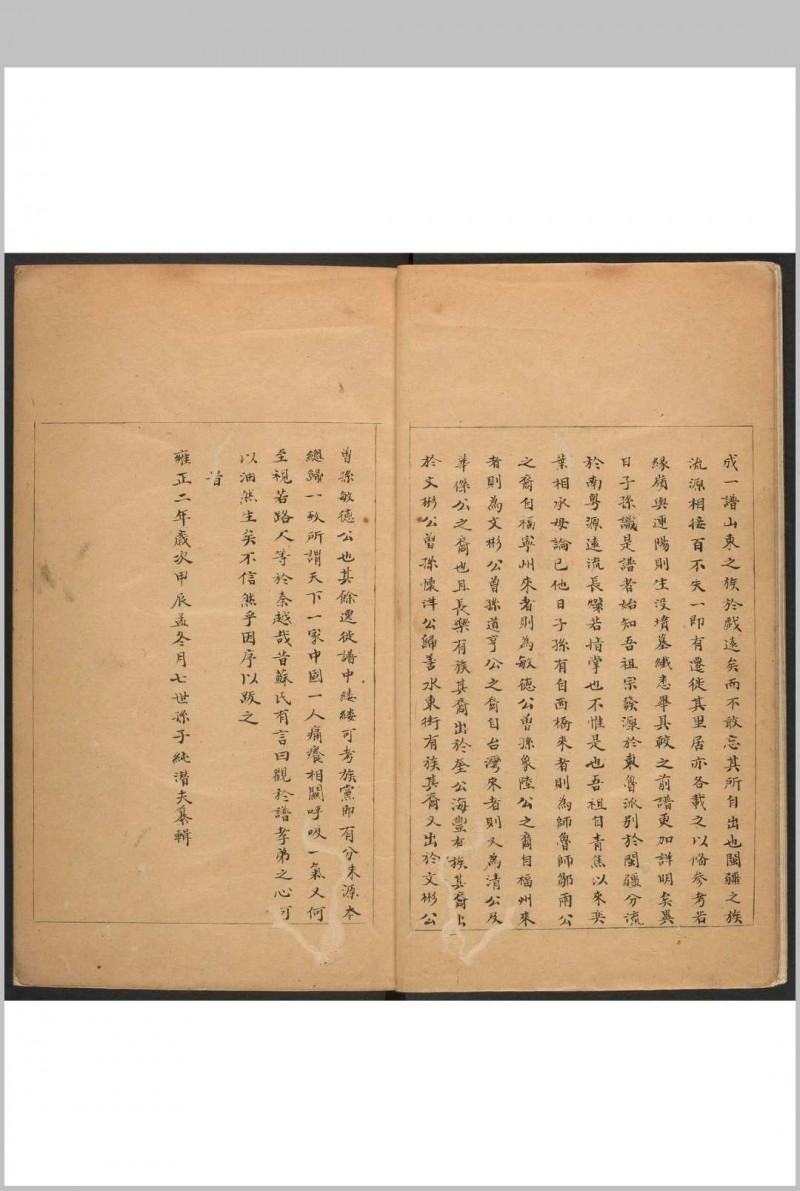 成一譜山東之族於戲遠矣而不敢忘其所自出也閩疆之族
流源相接百不失一即有遷徙其里居亦各載之以俻參考若
緣嶺與連陽則生沒墳墓纖悉畢具較之前譜更加詳明矣異
日子孫讖是譜者始知吾祖宗發源於東魯派別於閩疆分流
於南粤源遠流長燦若指掌也不惟是也吾祖自青蕉以來奕
葉相承毋論已他日子孫有自西橋來者則為師魯師鄒兩公
之裔自福寧州來者則為敏德公曾孫象陸公之裔自福州來
者則為文彬公曾孫道亨公之裔自台灣來者則又為清公及
華傑公之裔也且長樂有族其裔出於公海豐有族其裔出
於文彬公曾孫懷洋公歸善水東街有族其裔又出於文彬公
曾孫敏德公也其餘遷徙譜中縷縷可考族黨即有分未源本
總歸一致所謂天下一家中國一人痛癢相關呼吸一氣又何
至視若路人等於秦越哉昔蘇氏有言曰觀於譜孝弟之心可
以油然生矣不信然乎因序以跋之
旹
雍正二年歲次甲辰孟冬月七世孫子純潛夫纂輯